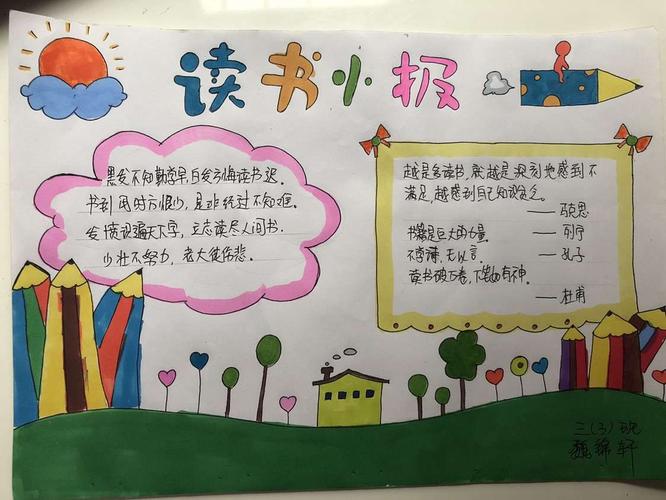 读书小报
黑发不知勤学早,白发方悔读书迟。
书到用时方恨少,是非经过不知难。
发愤识遍天下字,立志读尽人间书.
少壮不努力,老大徒伤悲。
越是多读书,就越是深刻地感到不
满足,越感到自己知识贫乏。
——马克思
书籍是巨大的力量。 ——列宁
不学诗,无以言。 ——孔子
读书破万卷,下笔如有神。
——杜甫
三(3)班
魏锦轩